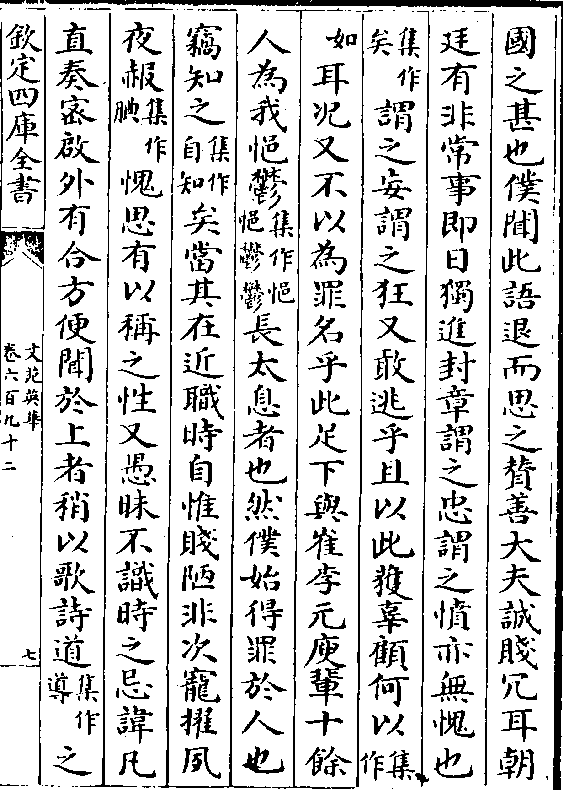 國之甚也僕聞此語退而思之賛善大夫誠賤冗耳朝
廷有非常事即日獨進封章謂之忠謂之憤亦無愧也
集作矣謂之妄謂之狂又敢逃乎且以此獲辜顧何以集作
如耳况又不以為罪名乎此足下與崔李元庾輩十餘
人為我悒鬱集作悒悒鬱鬱長太息者也然僕始得罪於人也
竊知之集作自知矣當其在近職時自惟賤陋非次寵擢夙
夜赧集作腆愧思有以稱之性又愚昧不識時之忌諱凡
直奏密啟外有合方便聞於上者稍以歌詩道集作導之
欽定四庫全書
文苑英華
卷六百九十二
七